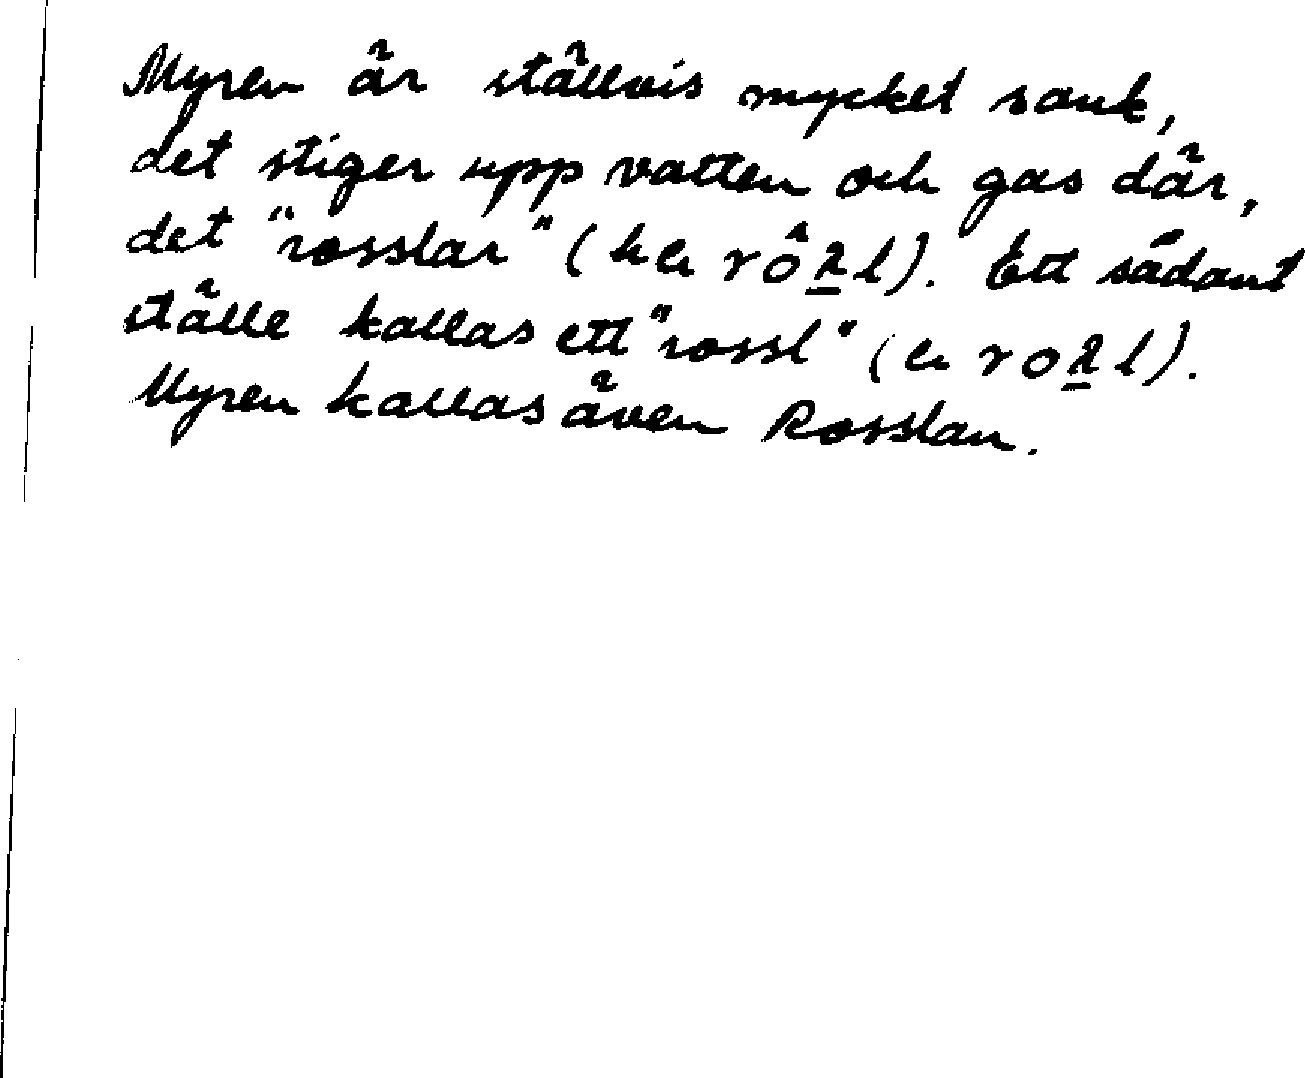 Myren är ställvis mycket sank,
det stiger upp vatten och gas där,
det "rosslar" ( ). Ett sådant
ställe kallas ett "rossl" ( ).
Myren kallas även Rosslan.